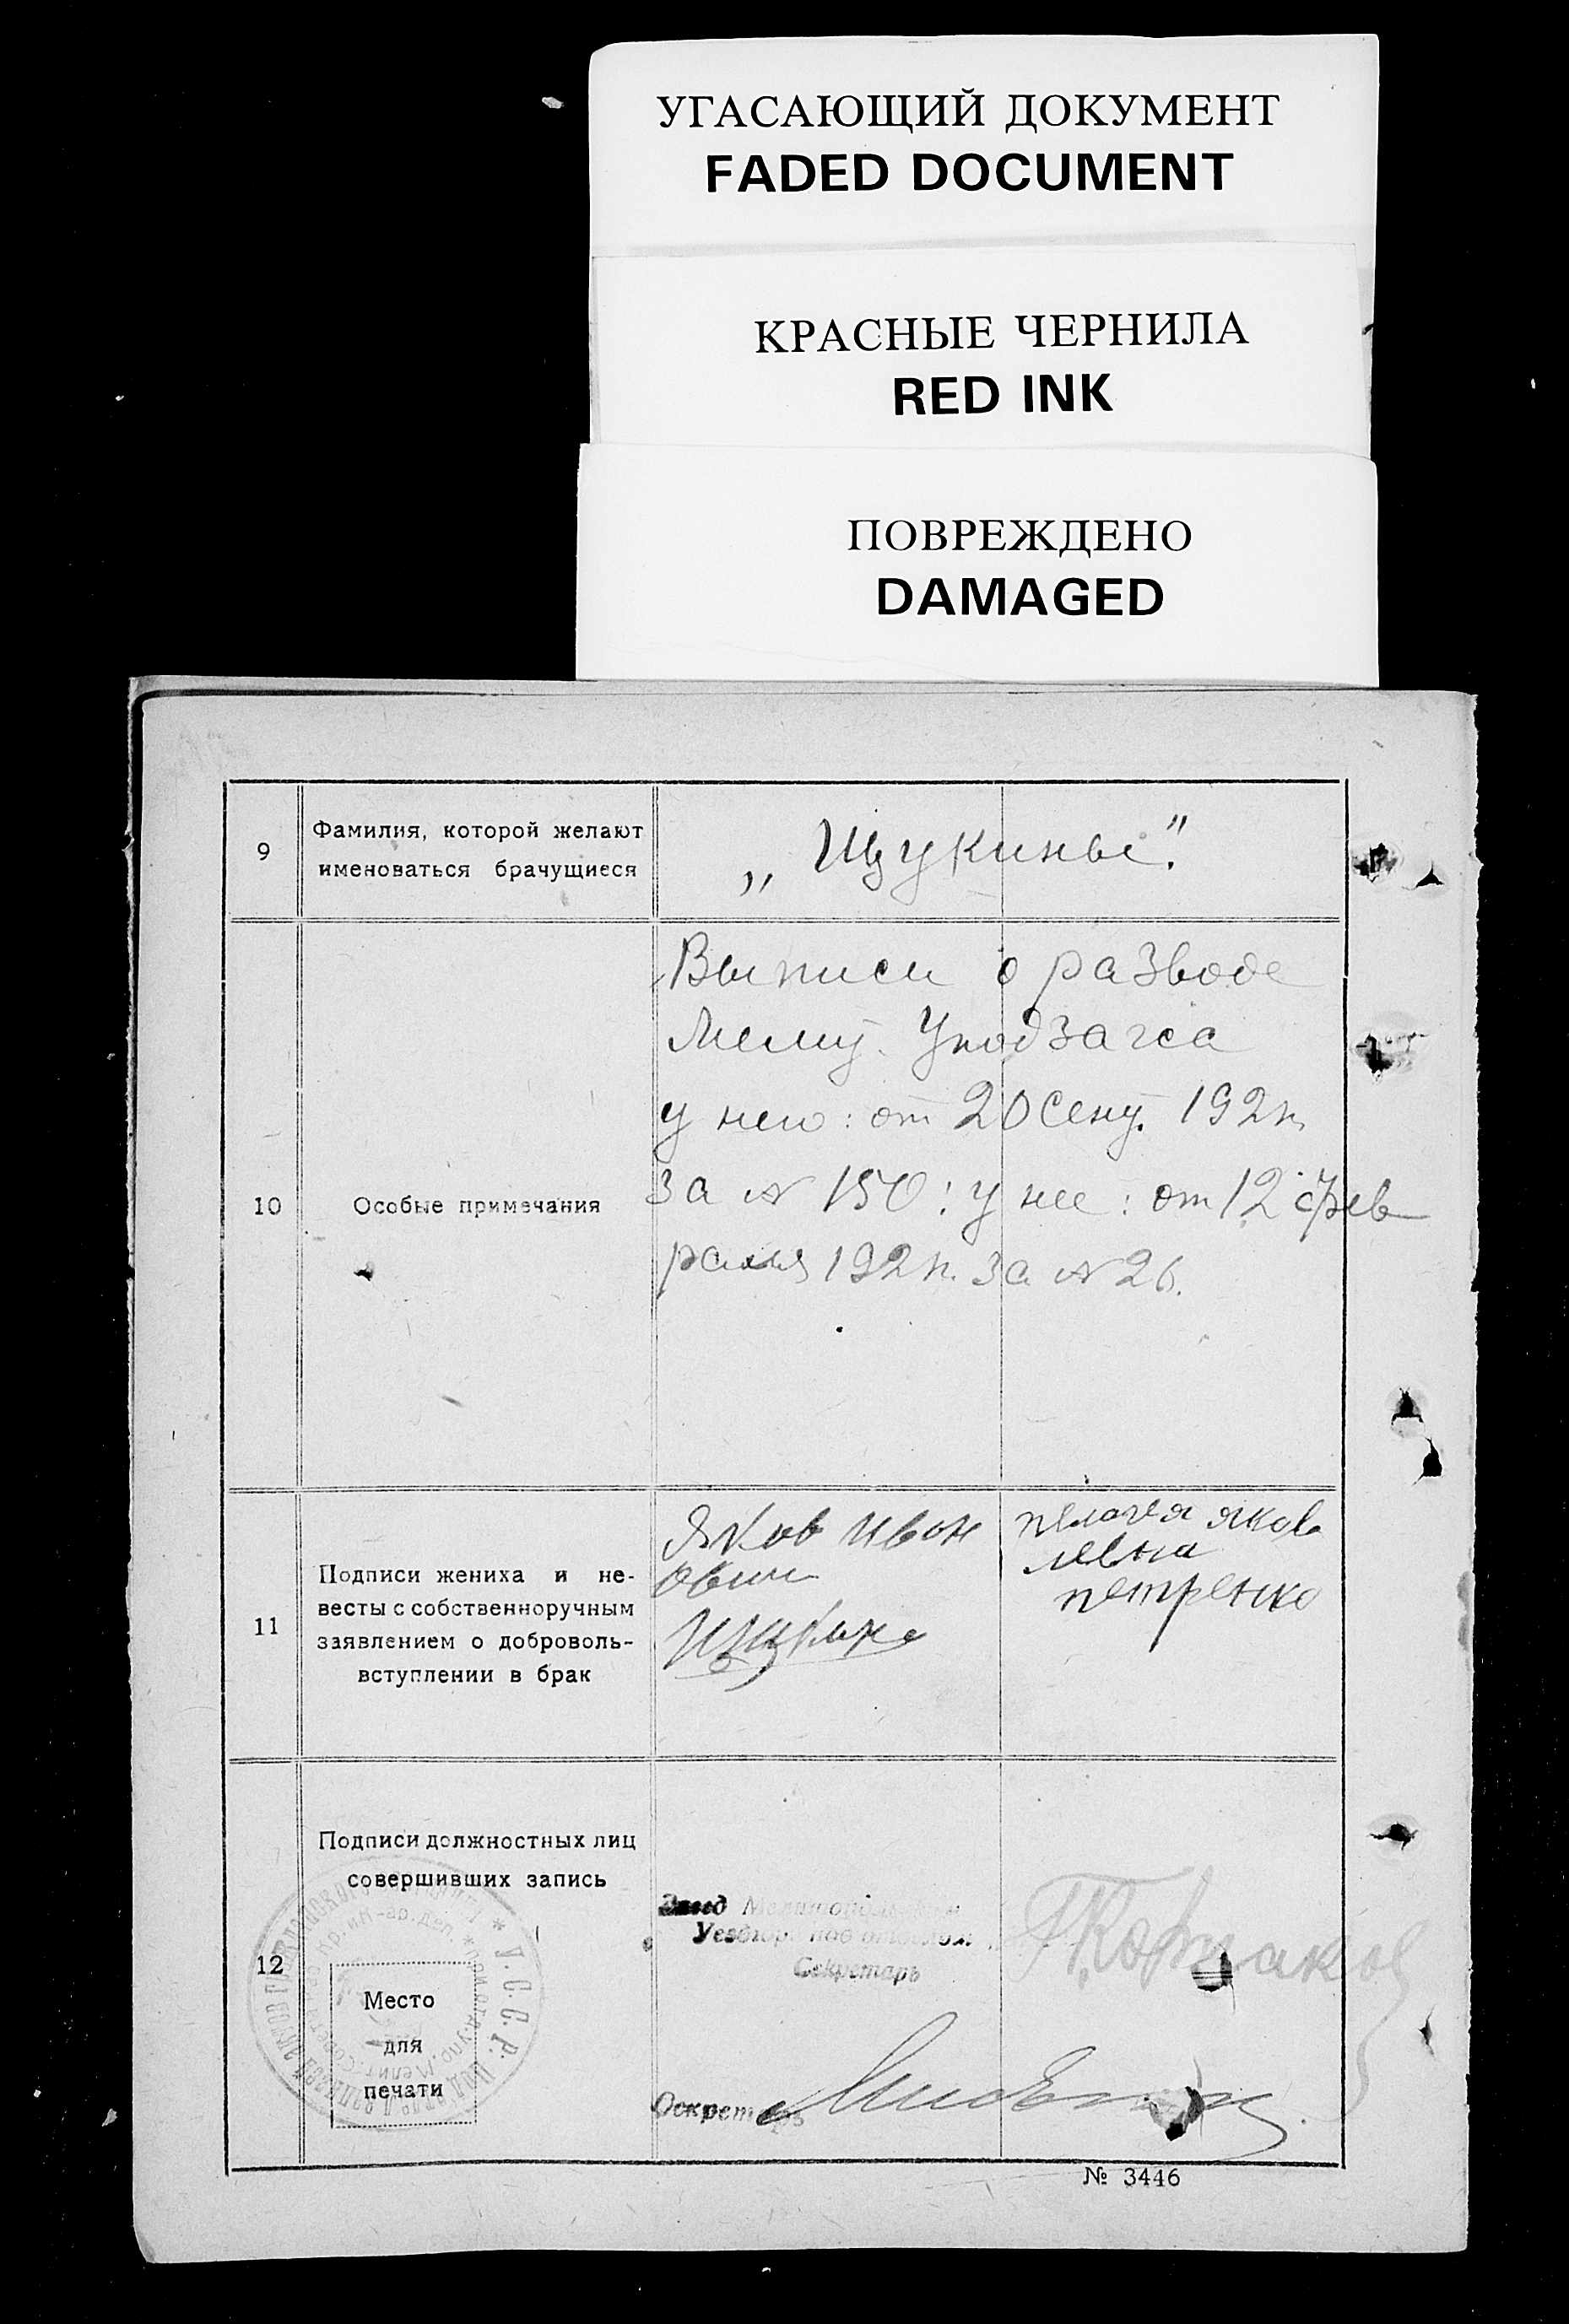 УГАСАЮЩИЙ ДОКУМЕНТ
FADED DOCUMENT
КРАСНЫЕ ЧЕРНИЛА
RED INK
ПОВРЕЖДЕНО
DAMAGED
9
Фамилия, которой желают
именоваться брачущиеся
„Щукины".
10
Особые примечания
Выписи о разводе
Мелит. Уподзагса
у него: от 20 Сент. 192
за № 150: у нее: от 12 фев
раля 192 за № 26.
11
Подписи жениха и не-
весты с собственноручным
заявлением о доброволь-
вступлении в брак
Яков Иван
ович
Щукин
пелагея яков
левна
петренко
12
Подписи должностных лиц
совершивших запись
Место
для
печати
У.С.С.Р.
Завед
Секретарь
Секретарь
№ 3446